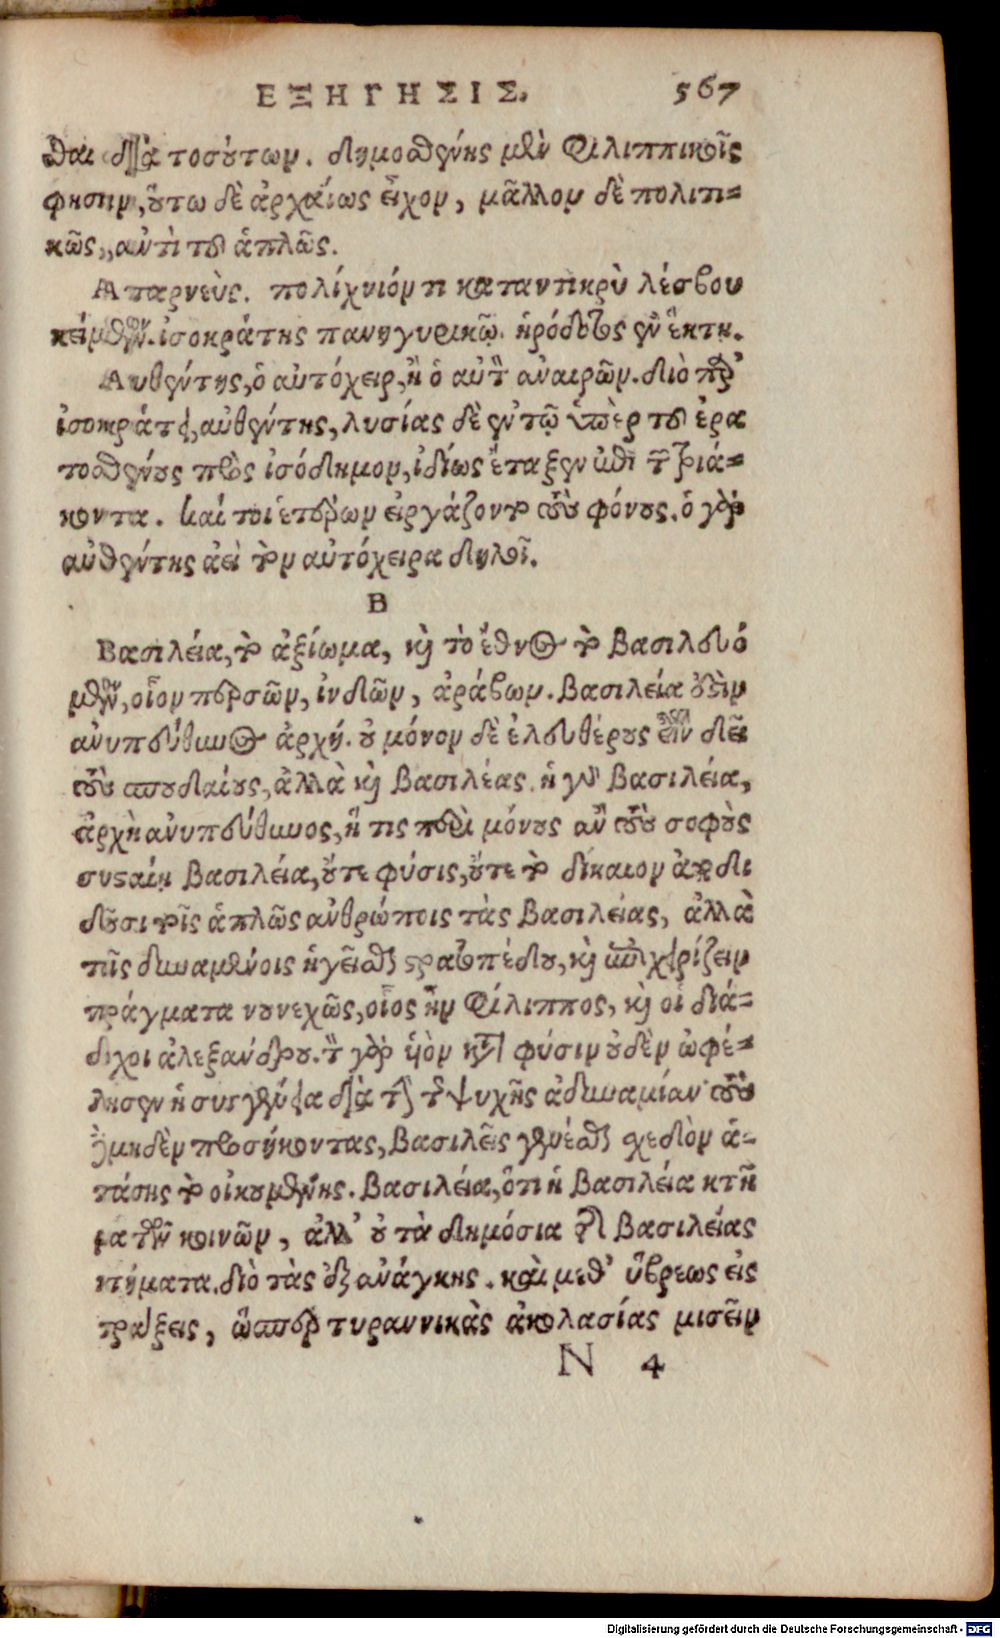 ΕΞΗΓΗΣΙΣ. 567
σθαι διὰ τοσούτων. δημοσθένης μὲν Φιλιππικοῖς
φησιν, οὕτω δὲ ἀρχαίως εἶχον, μᾶλλον δὲ πολιτι-
κῶς, ἀντὶ τοῦ ἁπλῶς.
Αταρνεὺς. πολίχνιόν τι καταντικρὺ λέσβου
κείμενον. ἰσοκράτης πανηγυρικῷ. ἡρόδοτος ἐν ἕκτῃ.
Αυθέντης, ὁ αὐτόχειρ, ἢ ὁ αὑτὸν ἀναιρῶν. διὸ παρ'
ἰσοκράτει, αὐθέντης, λυσίας δὲ ἐν τῷ ὑπὲρ τοῦ ἐρα
τοσθένους πρὸς ἰσόδημον, ἰδίως ἔταξεν ἐπὶ τῶν τριά-
κοντα. καί τοι ἑτέρων εἰργάζοντο τοὺς φόνους. ὁ γὰρ
αὐθέντης ἀεὶ τὸν αὐτόχειρα δηλοῖ.
Β
Βασιλεία, τὸ ἀξίωμα, καὶ τὸ ἔθνος τὸ βασιλευό
μενον, οἷον περσῶν, ἰνδῶν, ἀράβων. βασιλεία ἐστὶν
ἀνυπεύθυνος ἀρχή. οὐ μόνον δὲ ἐλευθέρους εἶναι δεῖ
τοὺς σπουδαίους, ἀλλὰ καὶ βασιλέας. ἡ γὰρ βασιλεία,
ἀρχὴ ἀνυπεύθυνος, ἥ τις περὶ μόνους ἂν τοὺς σοφοὺς
συσταίη βασιλεία, οὔτε φύσις, οὔτε τὸ δίκαιον ἀποδι
δοῦσι τοῖς ἁπλῶς ἀνθρώποις τὰς βασιλείας, ἀλλὰ
τοῖς δυναμένοις ἡγεῖσθαι στρατοπέδου, καὶ μεταχειρίζειν
πράγματα νουνεχῶς, οἷος ἦν Φίλιππος, καὶ οἱ διά-
δοχοι ἀλεξάνδρου. τὸν γὰρ υἱὸν κατὰ φύσιν οὐδὲν ὠφέ-
λησεν ἡ συγγένεια διὰ τὴν τῆς ψυχῆς ἀδυναμίαν. τοὺς
δὲ μηδὲν προσήκοντας, βασιλεῖς γενέσθαι σχεδὸν ἁ-
πάσης τῆς οἰκουμένης. βασιλεία, ὅτι ἡ βασιλεία κτῆ
μα τῶν κοινῶν, ἀλλ' οὐ τὰ δημόσια τῆς βασιλείας
κτήματα. διὸ τὰς ἐξ ἀνάγκης καὶ μεθ' ὕβρεως εἰς
πράξεις, ὥσπερ τυραννικὰς ἀκολασίας μισεῖν
N 4
Digitalisierung gefördert durch die Deutsche Forschungsgemeinschaft - DFG